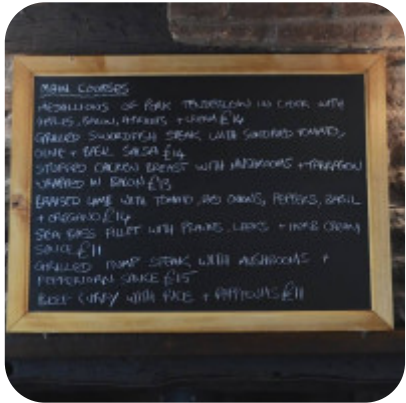 MAIN COURSES
MEDALLIONS OF PORK TENDERLOIN IN CIDER WITH
APPLES, BACON, + CREAM £14
GRILLED SWORDFISH STEAK WITH SUNDRIED TOMATO,
OLIVE + BASIL SALSA £14
STUFFED CHICKEN BREAST WITH MUSHROOMS + TARRAGON
WRAPPED IN BACON £13
BRAISED LAMB WITH TOMATO, RED ONIONS, PEPPERS, BASIL
+ OREGANO £14
SEA BASS FILLET WITH PRAWNS, LEEKS + HERB CREAM
SAUCE £11
GRILLED RUMP STEAK WITH MUSHROOMS +
PEPPERCORN SAUCE £15
BEEF CURRY WITH RICE + £11